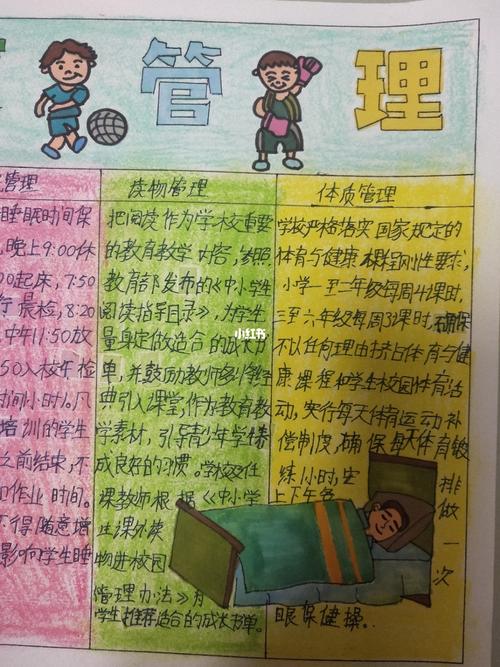 管 理
管理
睡眠时间保
晚上9:00休
00起床,7:50
行 晨检,8:20
中午11:50放
50入校午检
时间小时)。凡
培训的学生
之前结束,不
作业时间。
不得随意增
影响学生睡
读物管理
把阅读作为学校重要
的教育教学内容,参照
教育部发布的《中小学生
阅读指导目录》,为学生
量身定做适合的成长书
单,并鼓励教师多将经
典引入课堂,作为教育教
学素材,引导青少年学生养
成良好的习惯。学校责任
课教师根据《中小学
生课外读
物进校园
管理办法》为
学生推荐适合的成长书单。
体质管理
学校严格落实国家规定的
体育与健康课程刚性要求,
小学一至二年级每周4课时,
三至六年级每周3课时,确保
不以任何理由挤占体育与健
康课程和学生校园体育活
动,实行每天体育运动补
偿制度,确保每天体育锻
炼小时,安排
上下午各做一次
眼保健操。
小红书